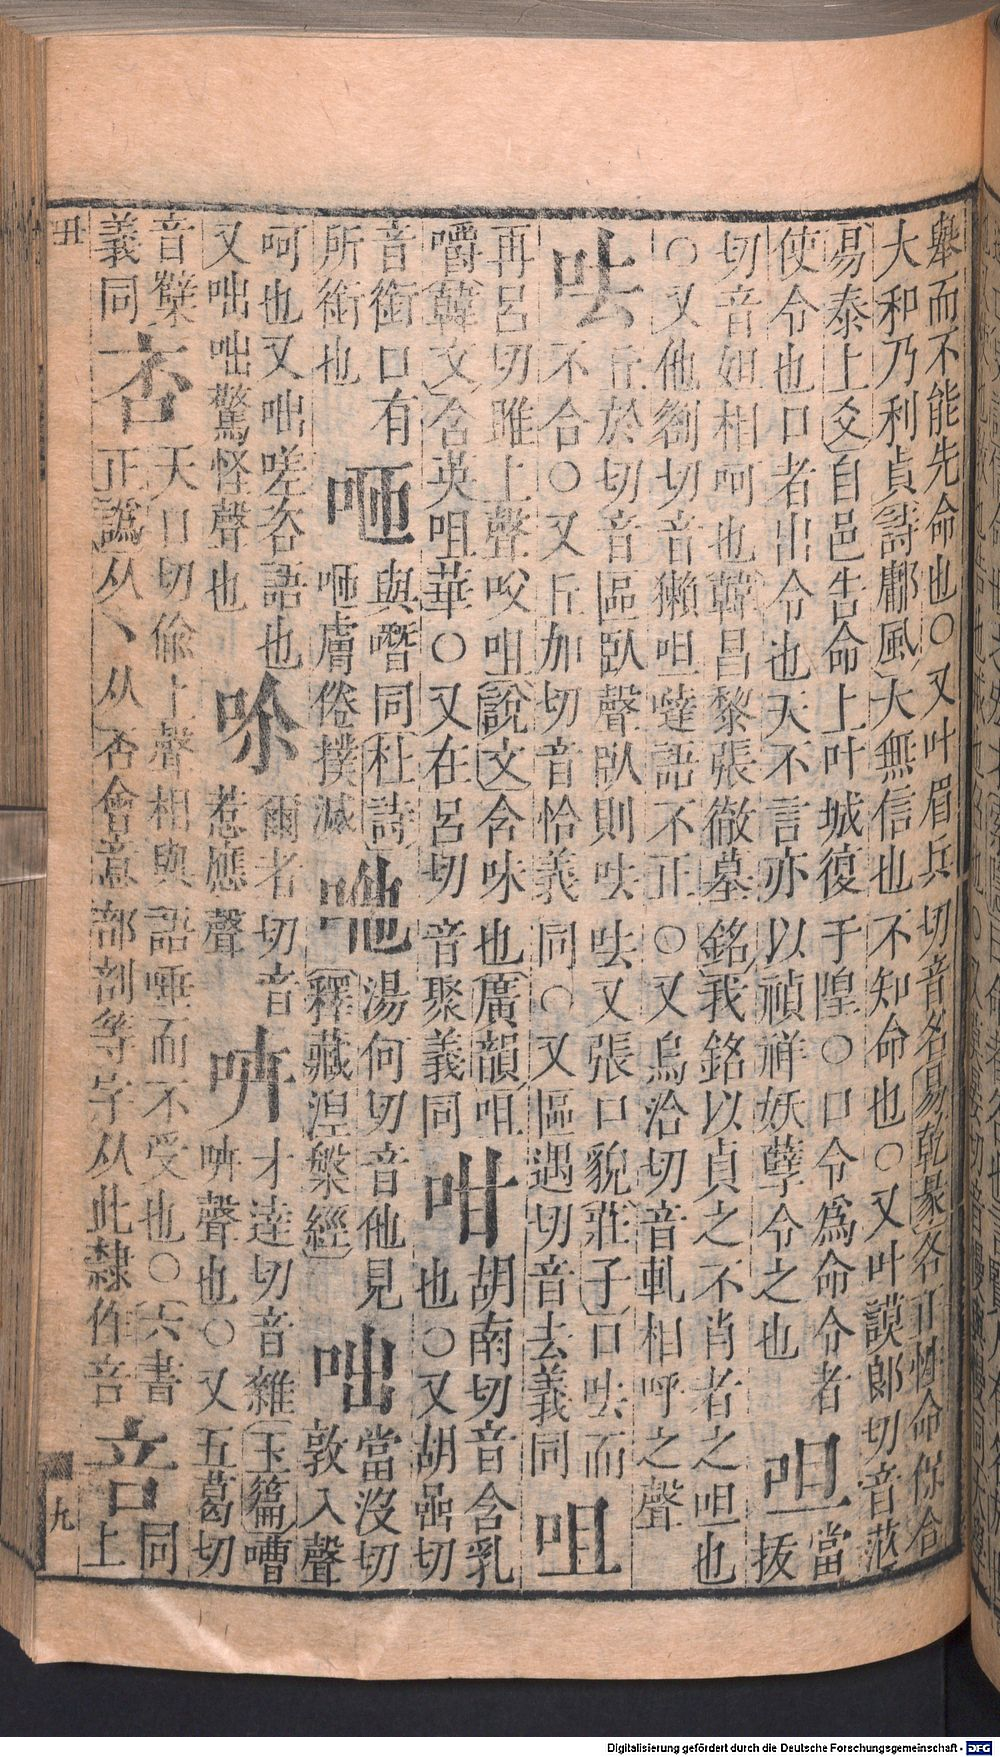 舉而不能先命也○又叶眉兵切音名易乾彖各正性命保合
大和乃利貞詩鄘風大無信也不知命也○又叶謨郎切音茫
易泰上爻自邑告命上叶城復于隍○口令爲命令者
呾當
使令也口者出令也天不言亦以禎祥妖孽令之也
拔
切音妲相呵也韓昌黎張徹墓銘我銘以貞之不肖者之呾也
○又他劄切音獺呾噠語不正○又烏洽切音軋相呼之聲
呿
丘於切音區臥聲臥則呿呿又張口貌莊子口呿而
不合○又丘加切音恰義同○又區遇切音去義同
咀
再呂切雎上聲咬咀說文含味也廣韻咀
嚼韓文含英咀華○又在呂切音聚義同
咁
胡南切音含乳
也○又胡嵒切
音銜口有
所銜也
咂
與噆同杜詩
咂膚倦撲滅
咃
湯何切音他見
釋藏湼槃經
咄
當沒切
敦入聲
呵也又咄嗟咨語也
又咄咄驚怪聲也
㖠
爾者切音
惹應聲
哜
才達切音雜玉篇嘈
哜聲也○又五葛切
音櫱
義同
否
天口切偸上聲相與語唾而不受也○六書
正譌从丶从否會意部剖等字从此隸作咅
咅
同
上
丑
九
Digitalisierung gefördert durch die Deutsche Forschungsgemeinschaft - DFG